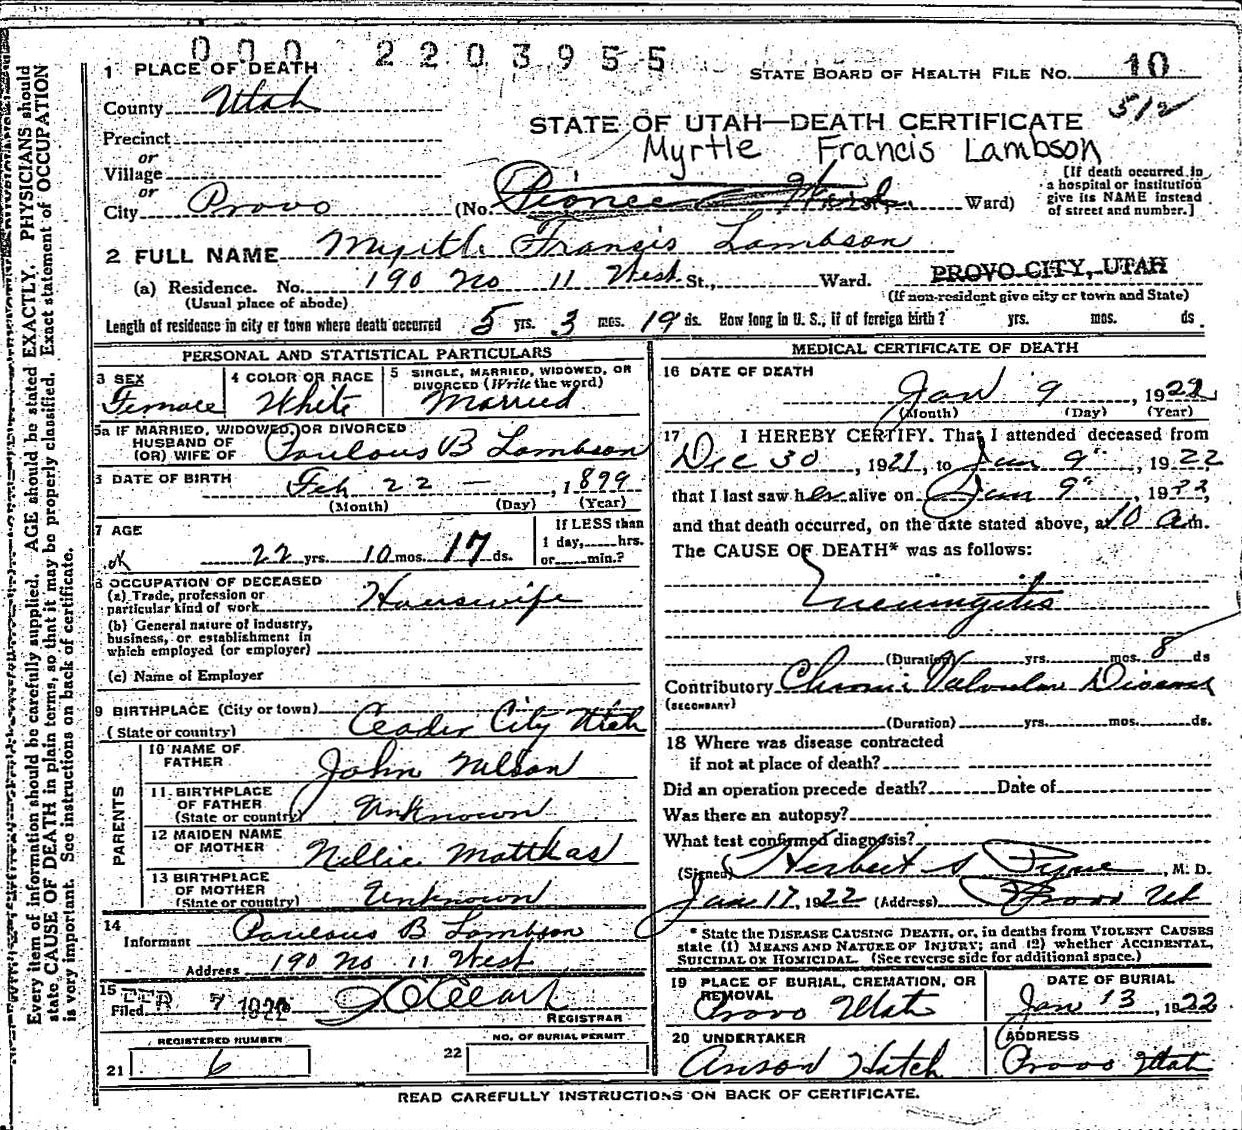 000 2203955
1 PLACE OF DEATH
STATE BOARD OF HEALTH FILE NO. 10
512
County Utah
STATE OF UTAH—DEATH CERTIFICATE
Precinct
Myrtle Francis Lambson
or
Village
or
City Provo
(No. Pioneer Ward St., Ward)
[If death occurred in
a hospital or institution
give its NAME instead
of street and number.]
2 FULL NAME Myrtle Francis Lambson
(a) Residence. No. 190 No 11 West St., Ward. PROVO CITY, UTAH
(Usual place of abode) (If non-resident give city or town and State)
Length of residence in city or town where death occurred 5 yrs. 3 mos. 19 ds. How long in U. S., if of foreign birth? yrs. mos. ds.
PERSONAL AND STATISTICAL PARTICULARS
3 SEX Female
4 COLOR OR RACE White
5 SINGLE, MARRIED, WIDOWED, OR
DIVORCED (Write the word)
Married
5a IF MARRIED, WIDOWED, OR DIVORCED
HUSBAND OF
(OR) WIFE OF Paulous B Lambson
DATE OF BIRTH Feb 22 — , 1899
(Month) (Day) (Year)
7 AGE
22 yrs. 10 mos. 17 ds.
If LESS than
1 day, hrs.
or min.?
8 OCCUPATION OF DECEASED
(a) Trade, profession or
particular kind of work Housewife
(b) General nature of industry,
business, or establishment in
which employed (or employer)
(c) Name of Employer
9 BIRTHPLACE (City or town)
(State or country) Ceader City Utah
PARENTS
10 NAME OF
FATHER John Nelson
11 BIRTHPLACE
OF FATHER
(State or country) Unknown
12 MAIDEN NAME
OF MOTHER Nellie Matthas
13 BIRTHPLACE
OF MOTHER
(State or country) Unknown
14
Informant Paulous B Lambson
Address 190 No 11 West
15
Filed 7 1922
REGISTRAR
REGISTERED NUMBER
21 6
NO. OF BURIAL PERMIT
22
MEDICAL CERTIFICATE OF DEATH
16 DATE OF DEATH
Jan 9 , 1922
(Month) (Day) (Year)
17 I HEREBY CERTIFY. That I attended deceased from
Dec 30 , 1921, to Jan 9" , 1922
that I last saw her alive on Jan 9" , 1922,
and that death occurred, on the date stated above, at 10 a m.
The CAUSE OF DEATH* was as follows:
Meningitis
(Duration) yrs. mos. 8 ds
Contributory Chronic Valvular Disease
(SECONDARY)
(Duration) yrs. mos. ds.
18 Where was disease contracted
if not at place of death?
Did an operation precede death? Date of
Was there an autopsy?
What test confirmed diagnosis?
(Signed) Herbert S Pyne , M. D.
Jan 17, 1922 (Address) Provo Ut
* State the DISEASE CAUSING DEATH, or, in deaths from VIOLENT CAUSES
state (1) MEANS AND NATURE OF INJURY; and (2) whether ACCIDENTAL,
SUICIDAL OR HOMICIDAL. (See reverse side for additional space.)
19 PLACE OF BURIAL, CREMATION, OR
REMOVAL
Provo Utah
DATE OF BURIAL
Jan 13 , 1922
20 UNDERTAKER
Anson Hatch
ADDRESS
Provo Utah
READ CAREFULLY INSTRUCTIONS ON BACK OF CERTIFICATE.
Every item of information should be carefully supplied. AGE should be stated EXACTLY. PHYSICIANS should
state CAUSE OF DEATH in plain terms, so that it may be properly classified. Exact statement of OCCUPATION
is very important. See instructions on back of certificate.